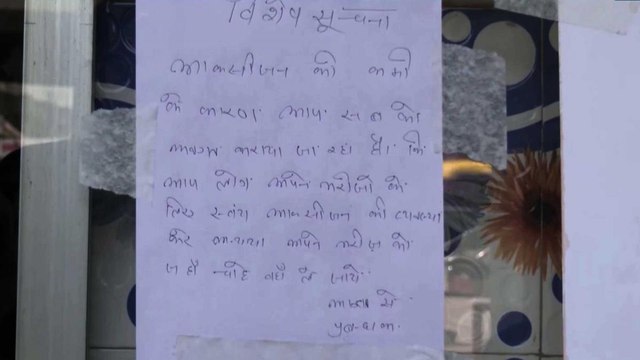 विशेष सूचना
आक्सीजन की कमी
के कारण आप सब को
अवगत कराया जा रहा है। कि
आप लोग अपने मरीजो के
लिए स्वंय आक्सीजन की व्यवस्था
करे अन्यथा अपने मरीज को
जहाँ चाहे वहाँ ले जाये
आज्ञा से
प्रबन्धक